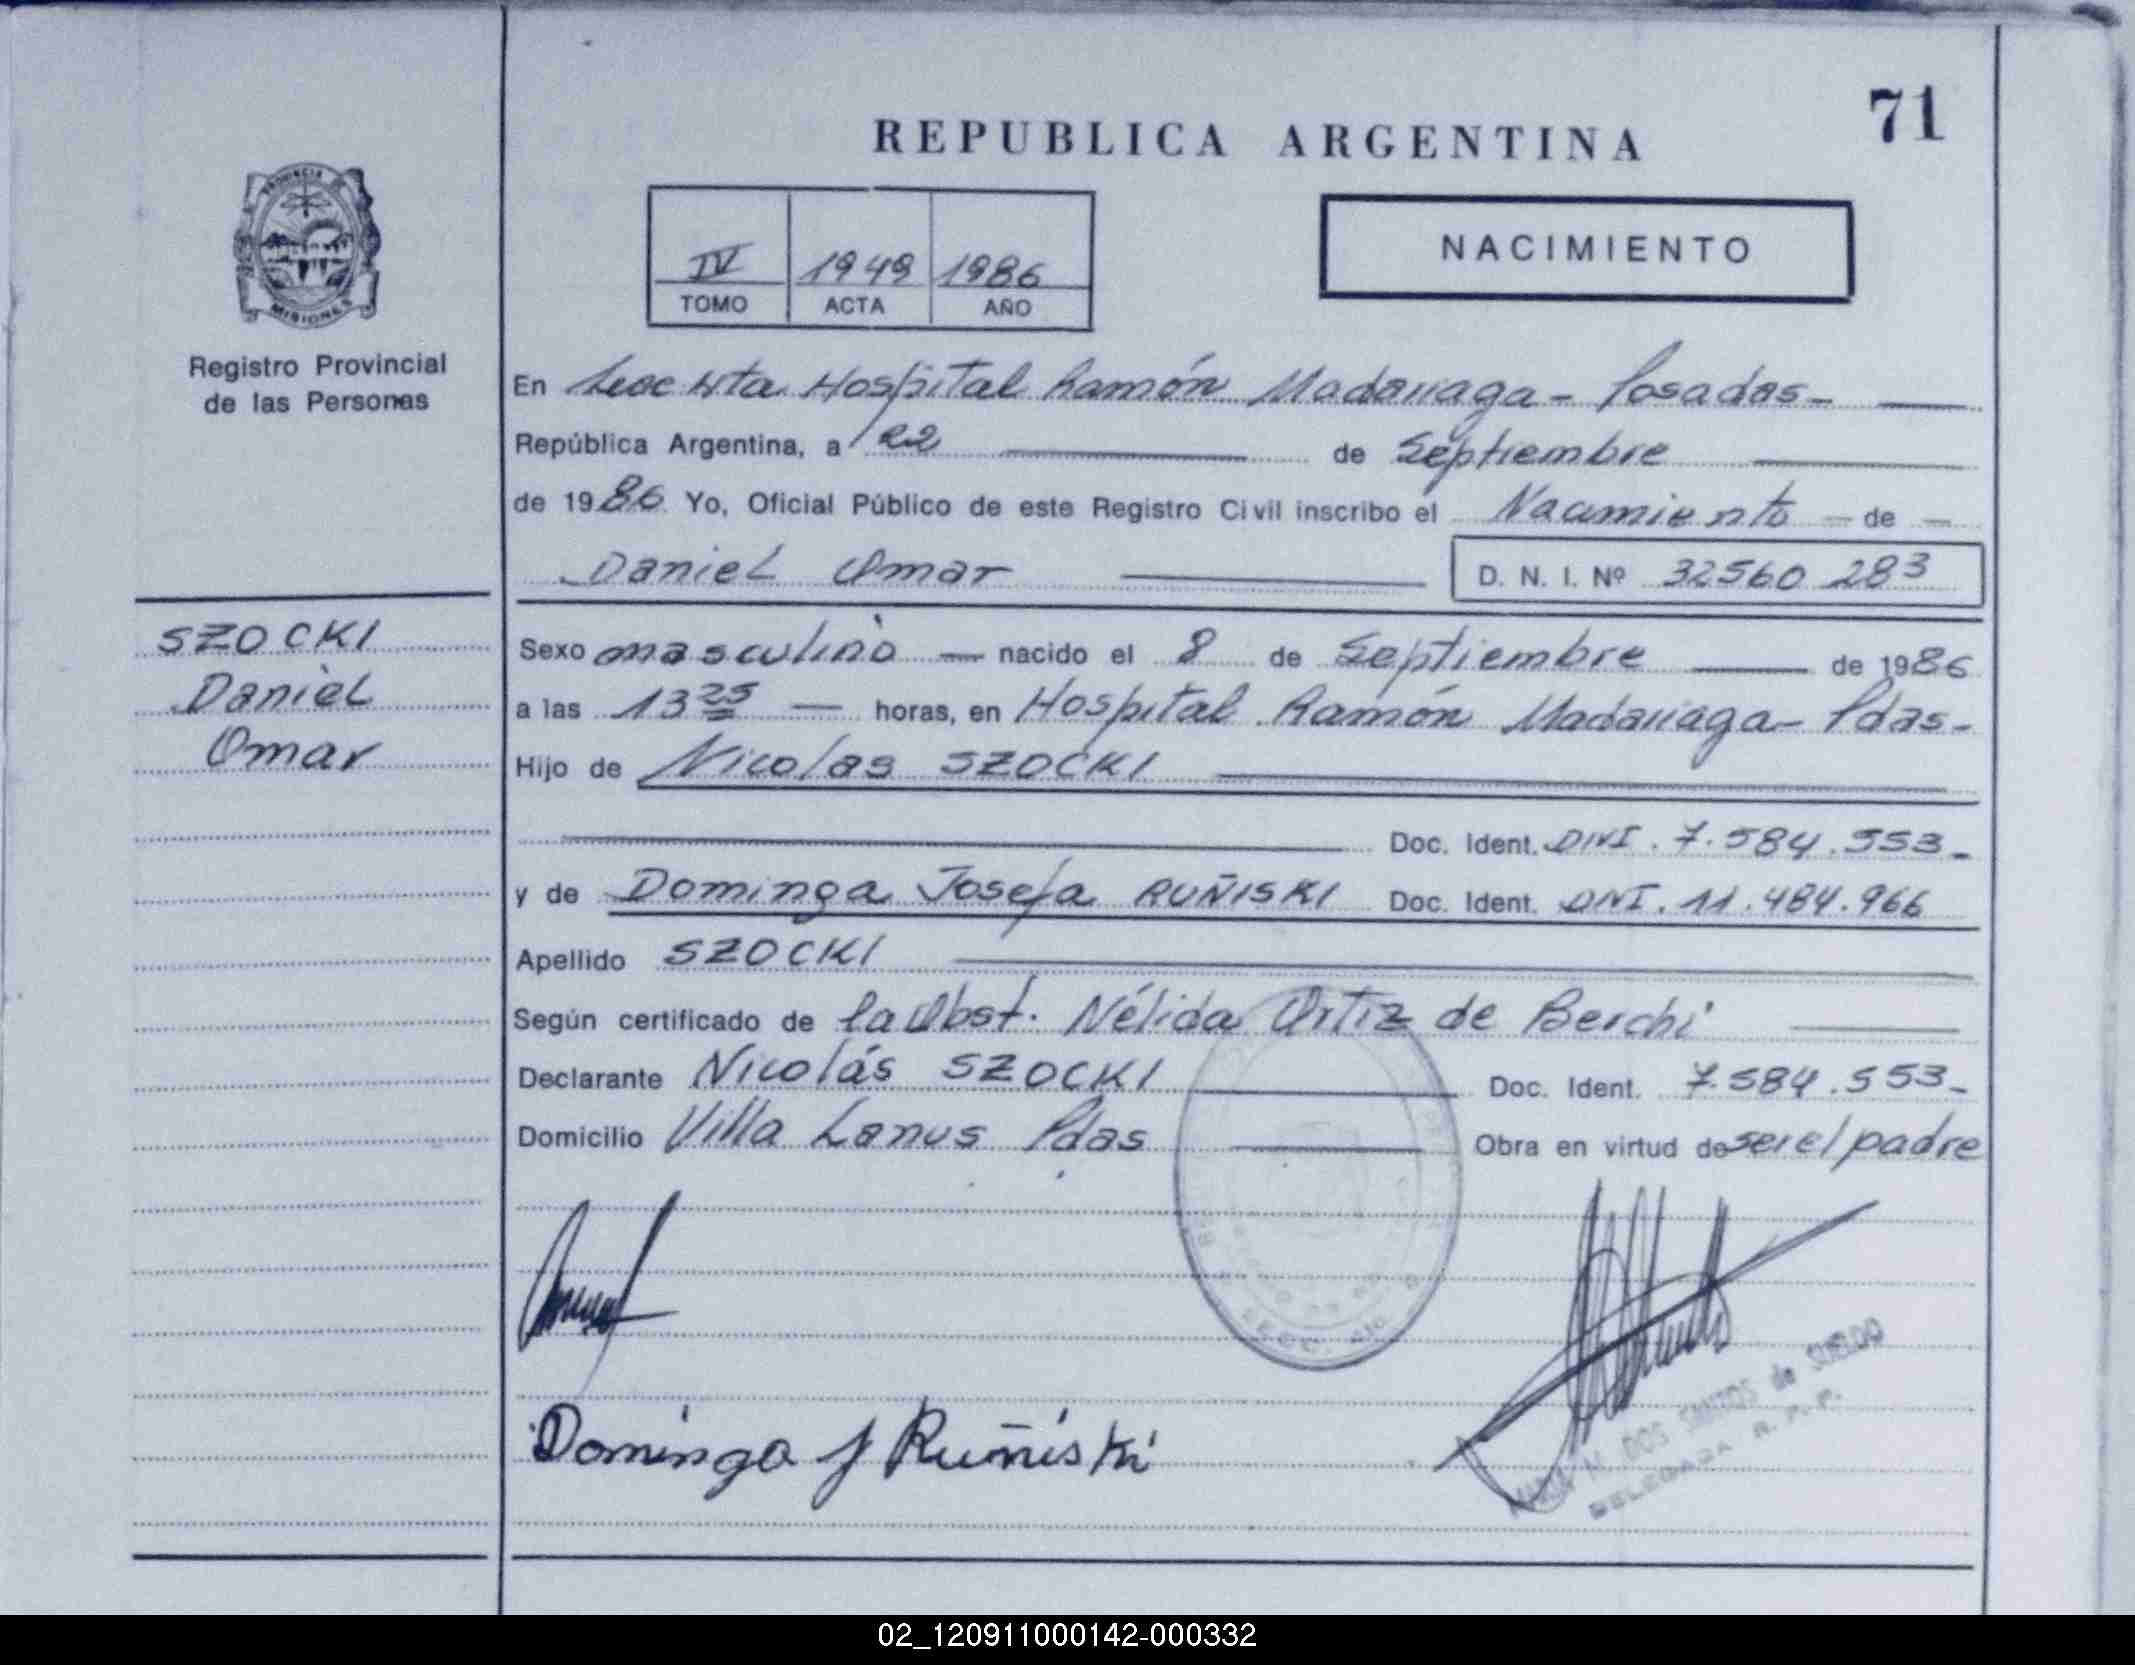 71
REPUBLICA ARGENTINA
PROVINCIA DE
MISIONES
IV 1949 1986
TOMO ACTA AÑO
NACIMIENTO
Registro Provincial
de las Personas
En Hospital Ramón Madariaga - Posadas -
República Argentina, a 22 de Septiembre
de 1986 Yo, Oficial Público de este Registro Civil inscribo el Nacimiento - de -
Daniel Omar D. N. I. Nº 32560 283
SZOCKI
Daniel
Omar
Sexo masculino - nacido el 8 de Septiembre de 1986
a las 13 25 - horas, en Hospital Ramón Madariaga - Pdas -
Hijo de Nicolas SZOCKI
Doc. Ident. DNI. 7.584.553 -
y de Dominga Josefa RUÑISKI Doc. Ident. DNI. 11.484.966
Apellido SZOCKI
Según certificado de la Obst. Nélida Ortiz de Berchi
Declarante Nicolás SZOCKI Doc. Ident. 7.584.553 -
Domicilio Villa Lanus Pdas Obra en virtud de ser el padre
Dominga J Ruñiski
MARIA N. DOS SANTOS de SUELDO
DELEGADA R. P. P.
02_120911000142-000332